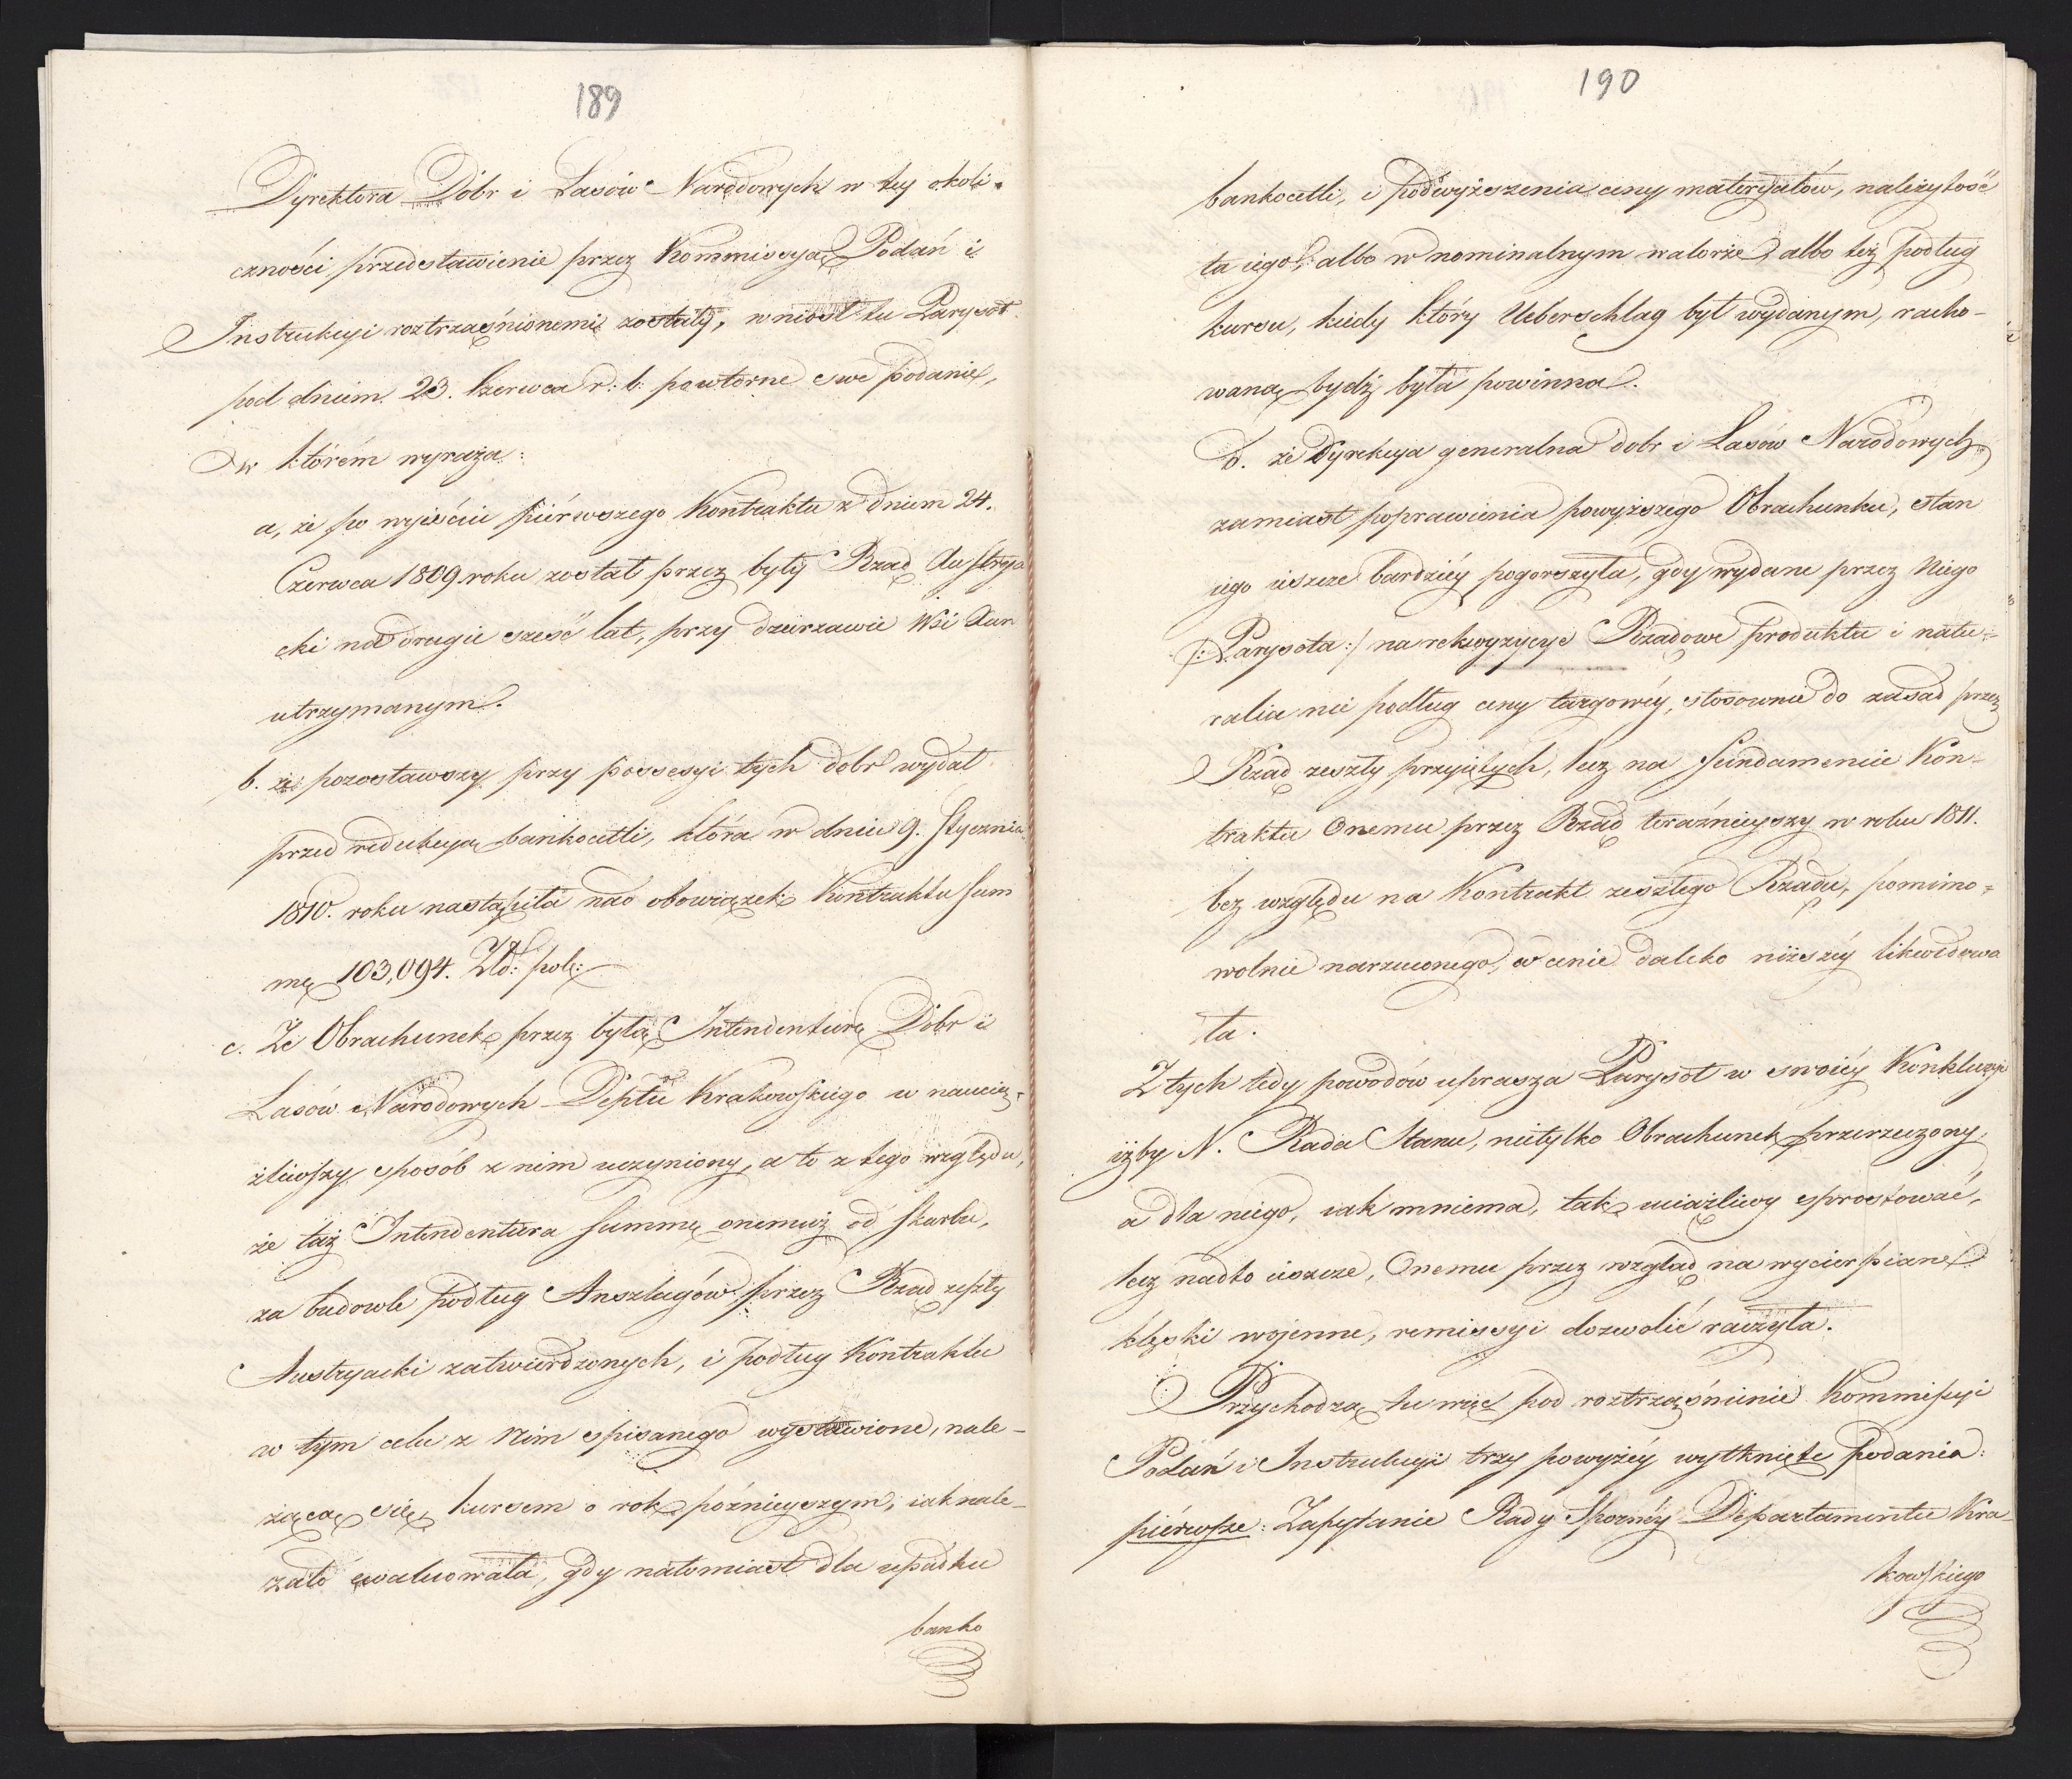 189
Dyrektora Dóbr i Lasów Narodowych w tey okoli-
czności przedstawienie przez Kommissyą Podań i
Instrukcyi roztrząśnionemi zostały, wniosł tu Parysot
pod dniem 23. Czerwca r: b: powtórne swe podanie,
w którém wyraża:
a, że po wyiściu piérwszego Kontraktu z dniem 24.
Czerwca 1809 roku został przez były Rząd Austrya
cki na drugie sześć lat, przy dzierzawie Wsi
utrzymanym.
b. że pozostawszy przy possesyi tych dobr wydał
przed redukcyą bankocetli, która w dniu 9. Stycznia
1810. roku nastąpiła nad obowiązek Kontraktu Sum
mę 103,094. Złd: pol:
c. Że Obrachunek przez byłą Intendenturę Dóbr i
Lasów Narodowych Deptu Krakowskiego w nauciąż-
żliwszy sposób z nim uczyniony, a to z tego względu,
że taż Intendentura Summę onemuż od Skarbu,
za budowle podług Anszlagów przez Rząd zeszły
Austryacki zatwierdzonych, i podług Kontraktu
w tym celu z Nim spisanego wystawione, nale-
żącą się, kursem o rok poźnieyszym, iak nale-
żało ewaluowała, gdy natomiast dla upadku
banko
190
bankocetli, i podwyższenia ceny materyałów, należytość
ta iego, albo w nominalnym walorze, albo też podług
kursu, kiedy który Ueberschlag był wydanym, racho-
waną bydź była powinna.
d. że Dyrekcya generalna dobr i Lasów Narodowych
zamiast poprawienia powyższego Obrachunku, stan
iego ieszcze bardziéy pogorszyła, gdy wydane przez Niego
/: Parysota :/ na rekwyzycye Rządowe produkta i natu-
ralia nie podług ceny targowéy, stosownie do zasad przez
Rząd zeszły przyiętych, lecz na fundamencie Kon-
traktu Onemu przez Rząd teraźnieyszy w roku 1811.
bez względu na Kontrakt zeszłego Rządu, pomimo-
wolnie narzuconego, w cenie daleko niższéy likwidowa
ła.
Z tych tedy powodów uprasza Parysot w swoiéy Konkluzyi
iżby N. Rada Stanu, nietylko Obrachunek przerzeczony,
a dla niego, iak mniema, tak uciążliwy sprostować,
lecz nadto ieszcze, Onemu przez wzgląd na wycierpiane
klęski woienne, remissyi dozwolić raczyła.
Przychodzą tu więc pod roztrząśnienie Kommissyi
Podań i Instrukcyi trzy powyżéy wytknięte podania:
piérwsze: Zapytanie Rady Sporney Departamentu Kra-
kowskiego